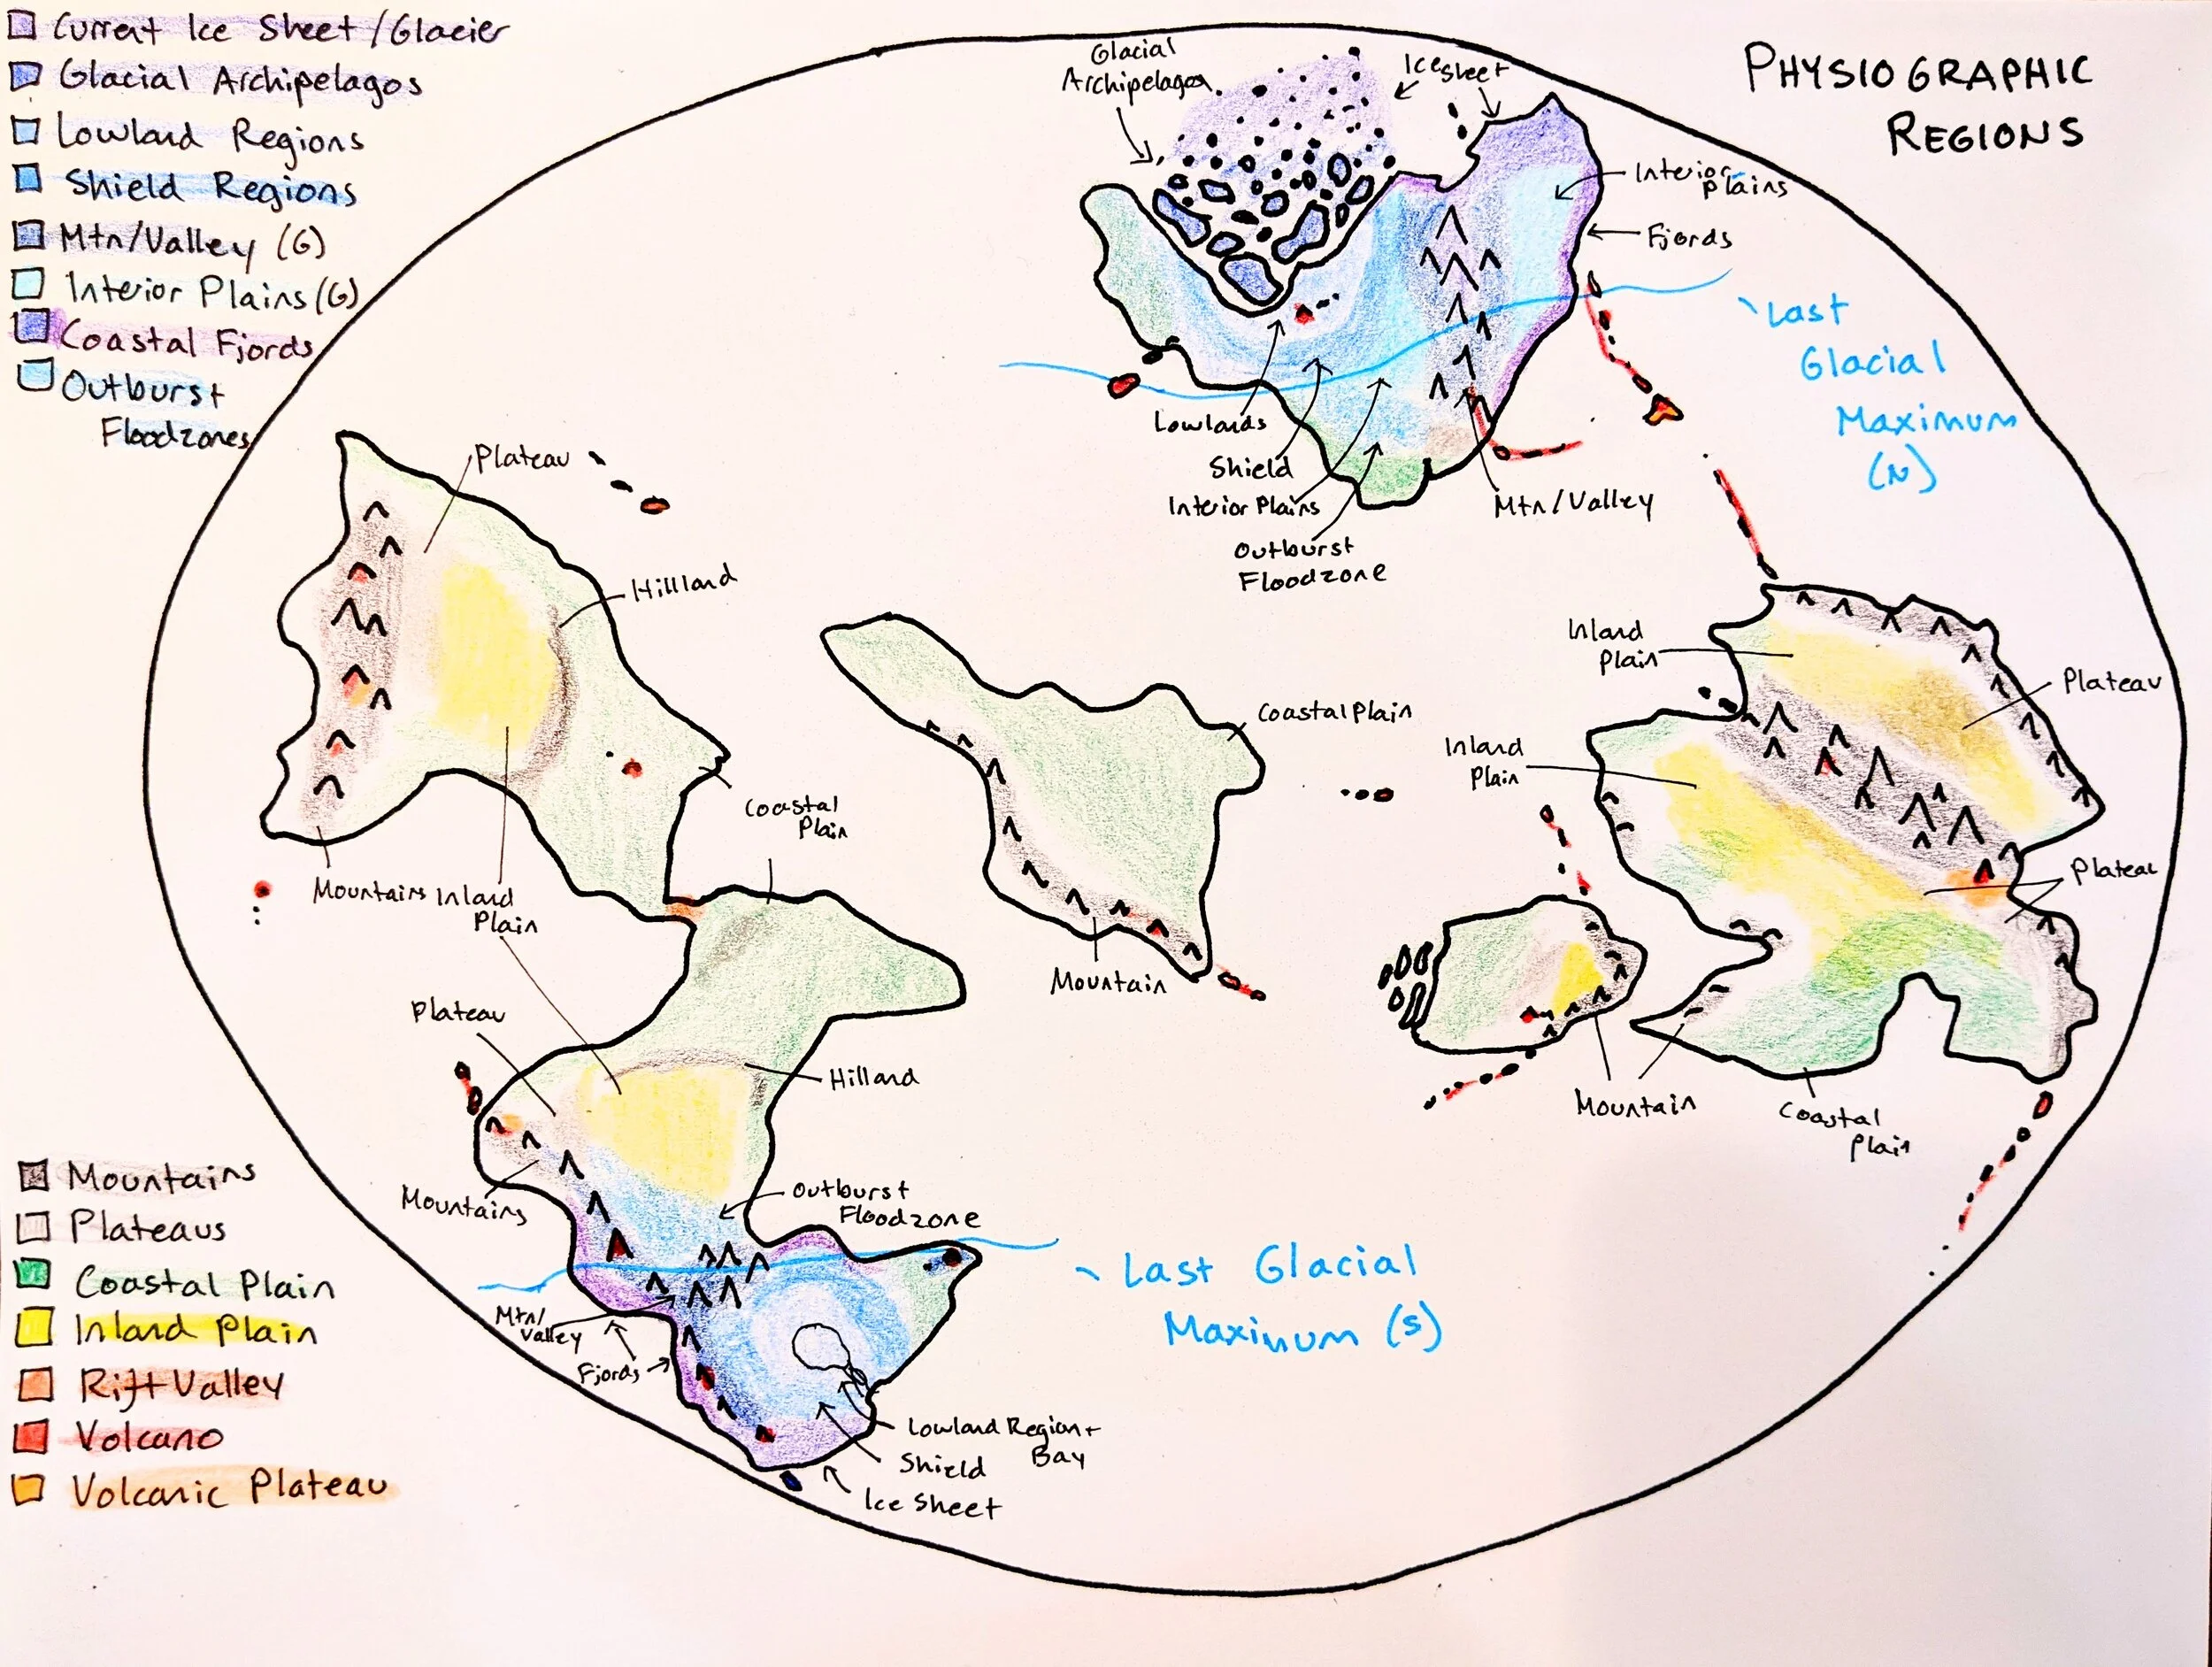 Current Ice Sheet/Glacier
Glacial Archipelagos
Lowland Regions
Shield Regions
Mtn/Valley (G)
Interior Plains (G)
Coastal Fjords
Outburst
Floodzones
PHYSIOGRAPHIC
REGIONS
Glacial
Archipelagos
Ice Sheet
Interior
Plains
Fjords
Last
Glacial
Maximum
(N)
Lowlands
Shield
Interior Plains
Outburst
Floodzone
Mtn/Valley
Plateau
Hilland
Coastal
Plain
Mountains
Inland
Plain
Coastal Plain
Mountain
Inland
Plain
Plateau
Inland
Plain
Plateau
Mountain
Coastal
Plain
Plateau
Hilland
Mountains
Outburst
Floodzone
Last Glacial
Maximum (S)
Mtn/
Valley
Fjords
Lowland Region +
Bay
Shield
Ice Sheet
Mountains
Plateaus
Coastal Plain
Inland Plain
Rift Valley
Volcano
Volcanic Plateau